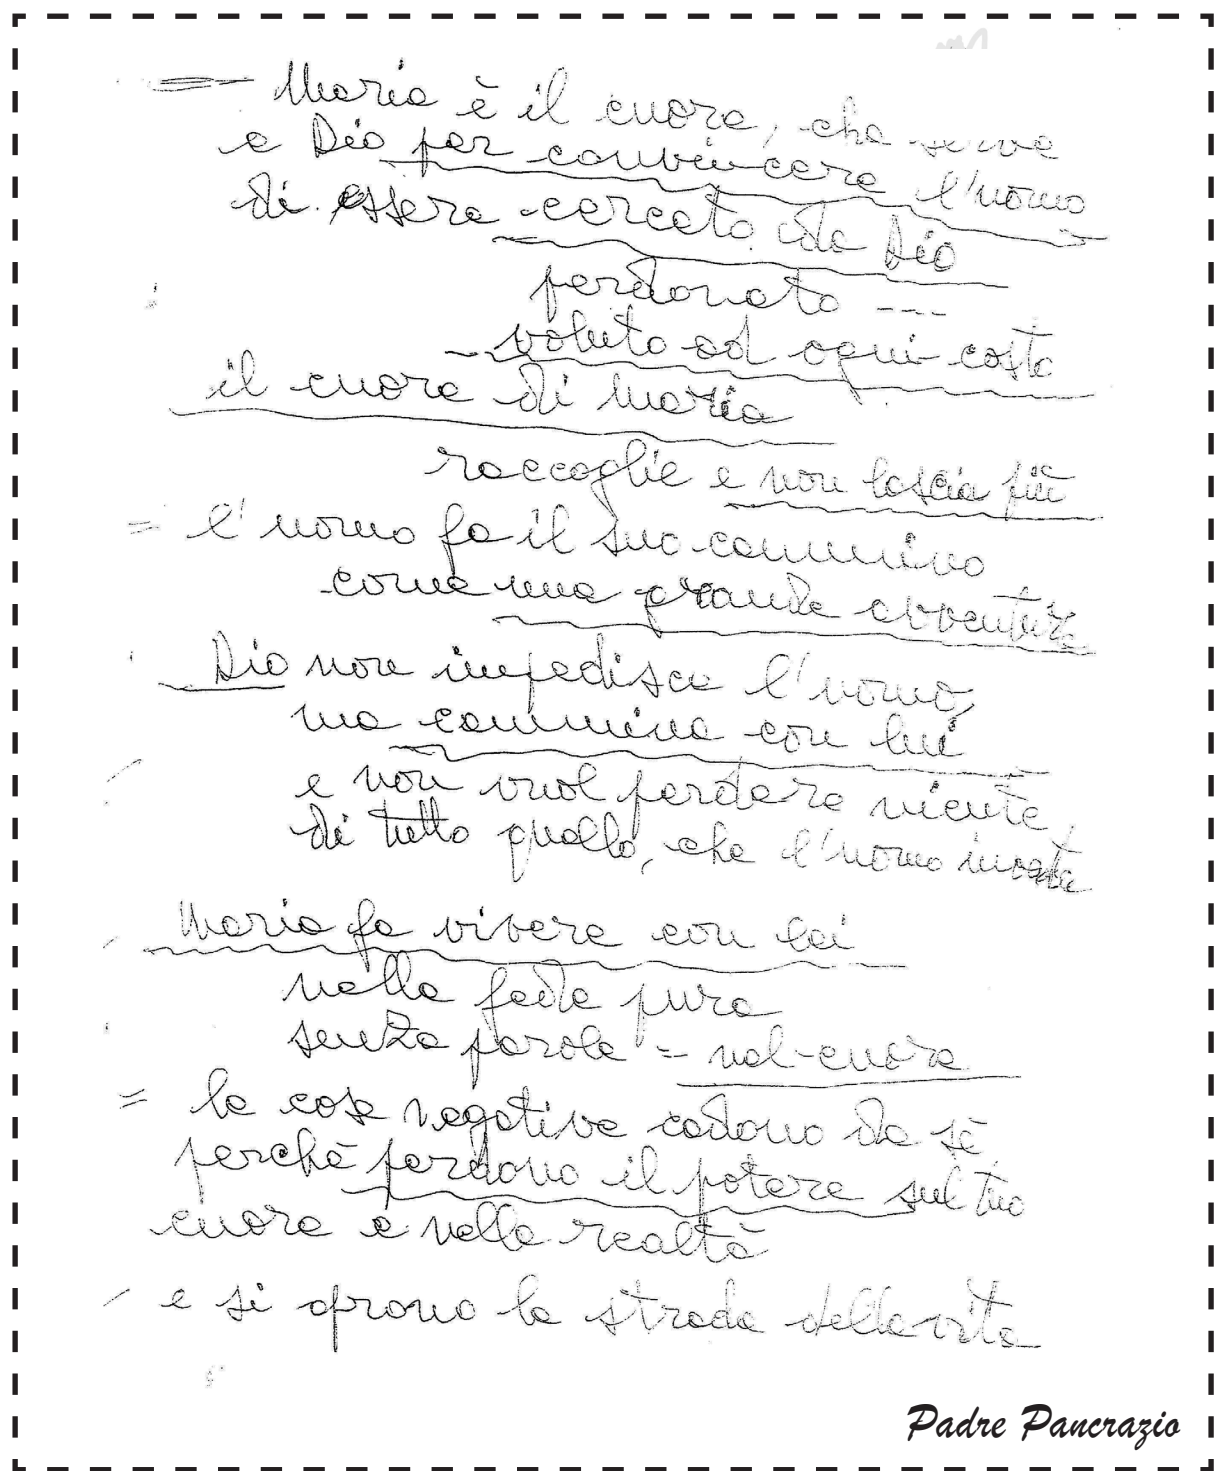 = Maria è il cuore, che serve
a Dio per convincere l'uomo
di essere cercato da Dio
perdonato ---
- voluto ad ogni costo
il cuore di Maria
raccoglie e non lascia più
= l'uomo fa il suo cammino
come una grande avventura
Dio non impedisce l'uomo,
ma cammina con lui
e non vuol perdere niente,
di tutto quello, che l'uomo
Maria fa vivere con lei
nella fede pura
senza parole = nel cuore
= le cose negative cadono da sè
perchè perdono il potere sul tuo
cuore e nella realtà
- e si aprono le strade della vita
Padre Pancrazio